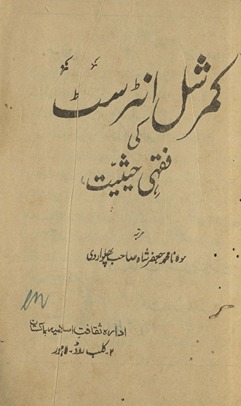 کمرشل انٹرسٹ
کی
فقہی حیثیت
مرتبہ
مولانا محمد جعفر شاہ صاحب پھلواروی
ادارہ ثقافت اسلامیہ پاکستان
۲- کلب روڈ - لاہور